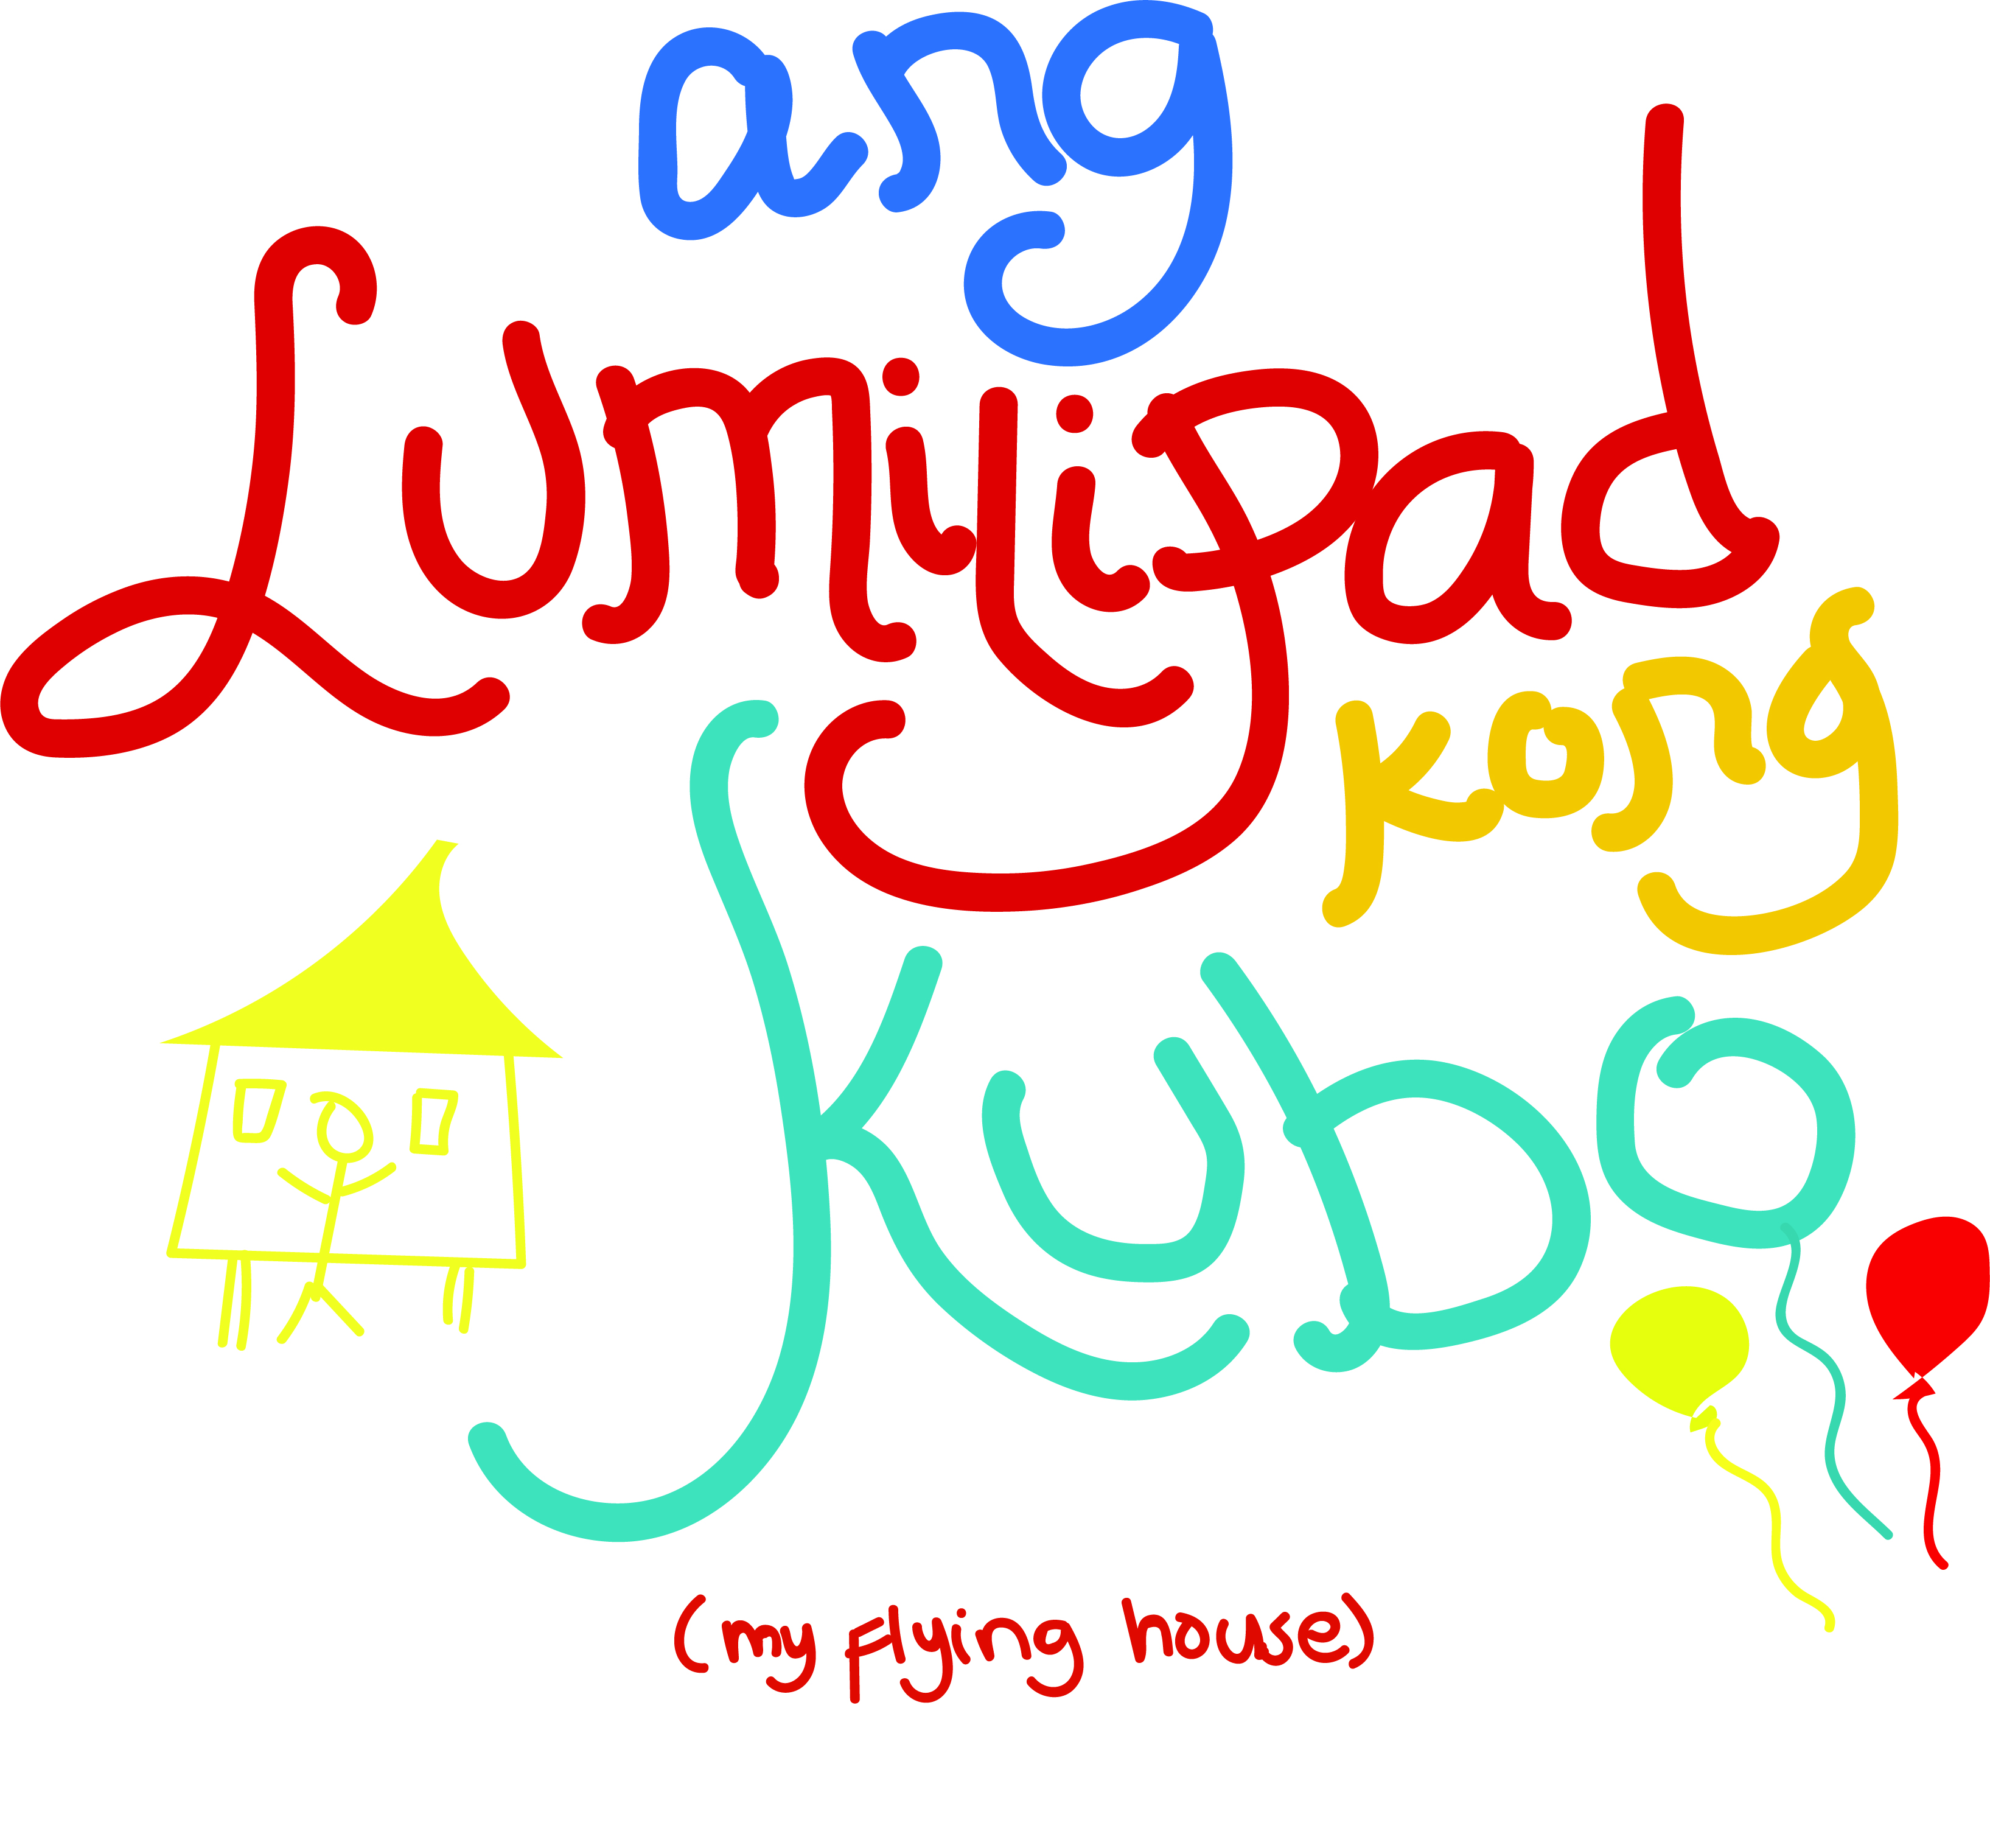 ang
Lumilipad
kong
KUbO
(my Flying house)